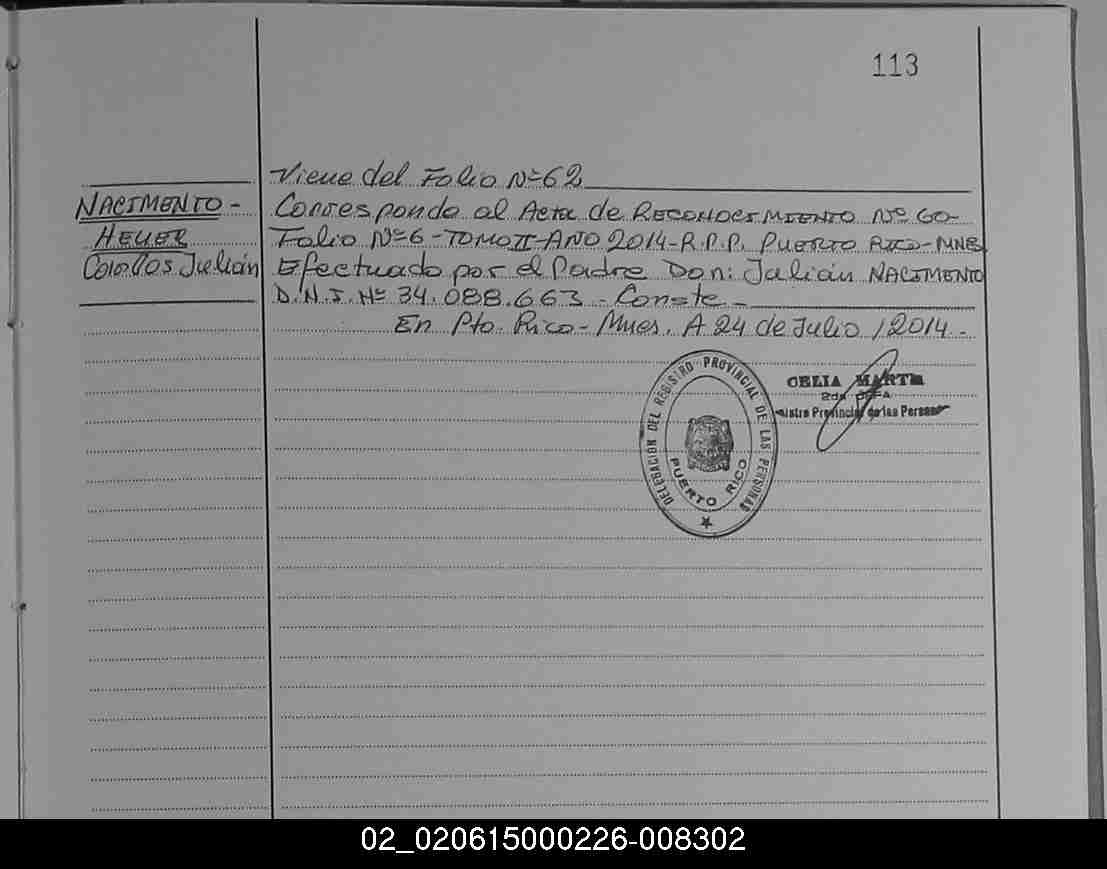 113
Viene del Folio Nº 62
NACIMENTO - Corresponde al Acta de RECONOCIMIENTO Nº 60-
HELLER Folio Nº 6 - TOMO II - AÑO 2014 - R.P.P. PUERTO RICO - MNES
Carlos Julián Efectuado por el Padre Don: Julián NACIMENTO
D.N.I. Nº 34.088.663 - Conste -
En Pto. Rico - Mnes. A 24 de Julio / 2014 -
DELEGACIÓN DEL REGISTRO PROVINCIAL DE LAS PERSONAS
PUERTO RICO
CELIA
2da JEFA
istro Provincial de las Person
02_020615000226-008302